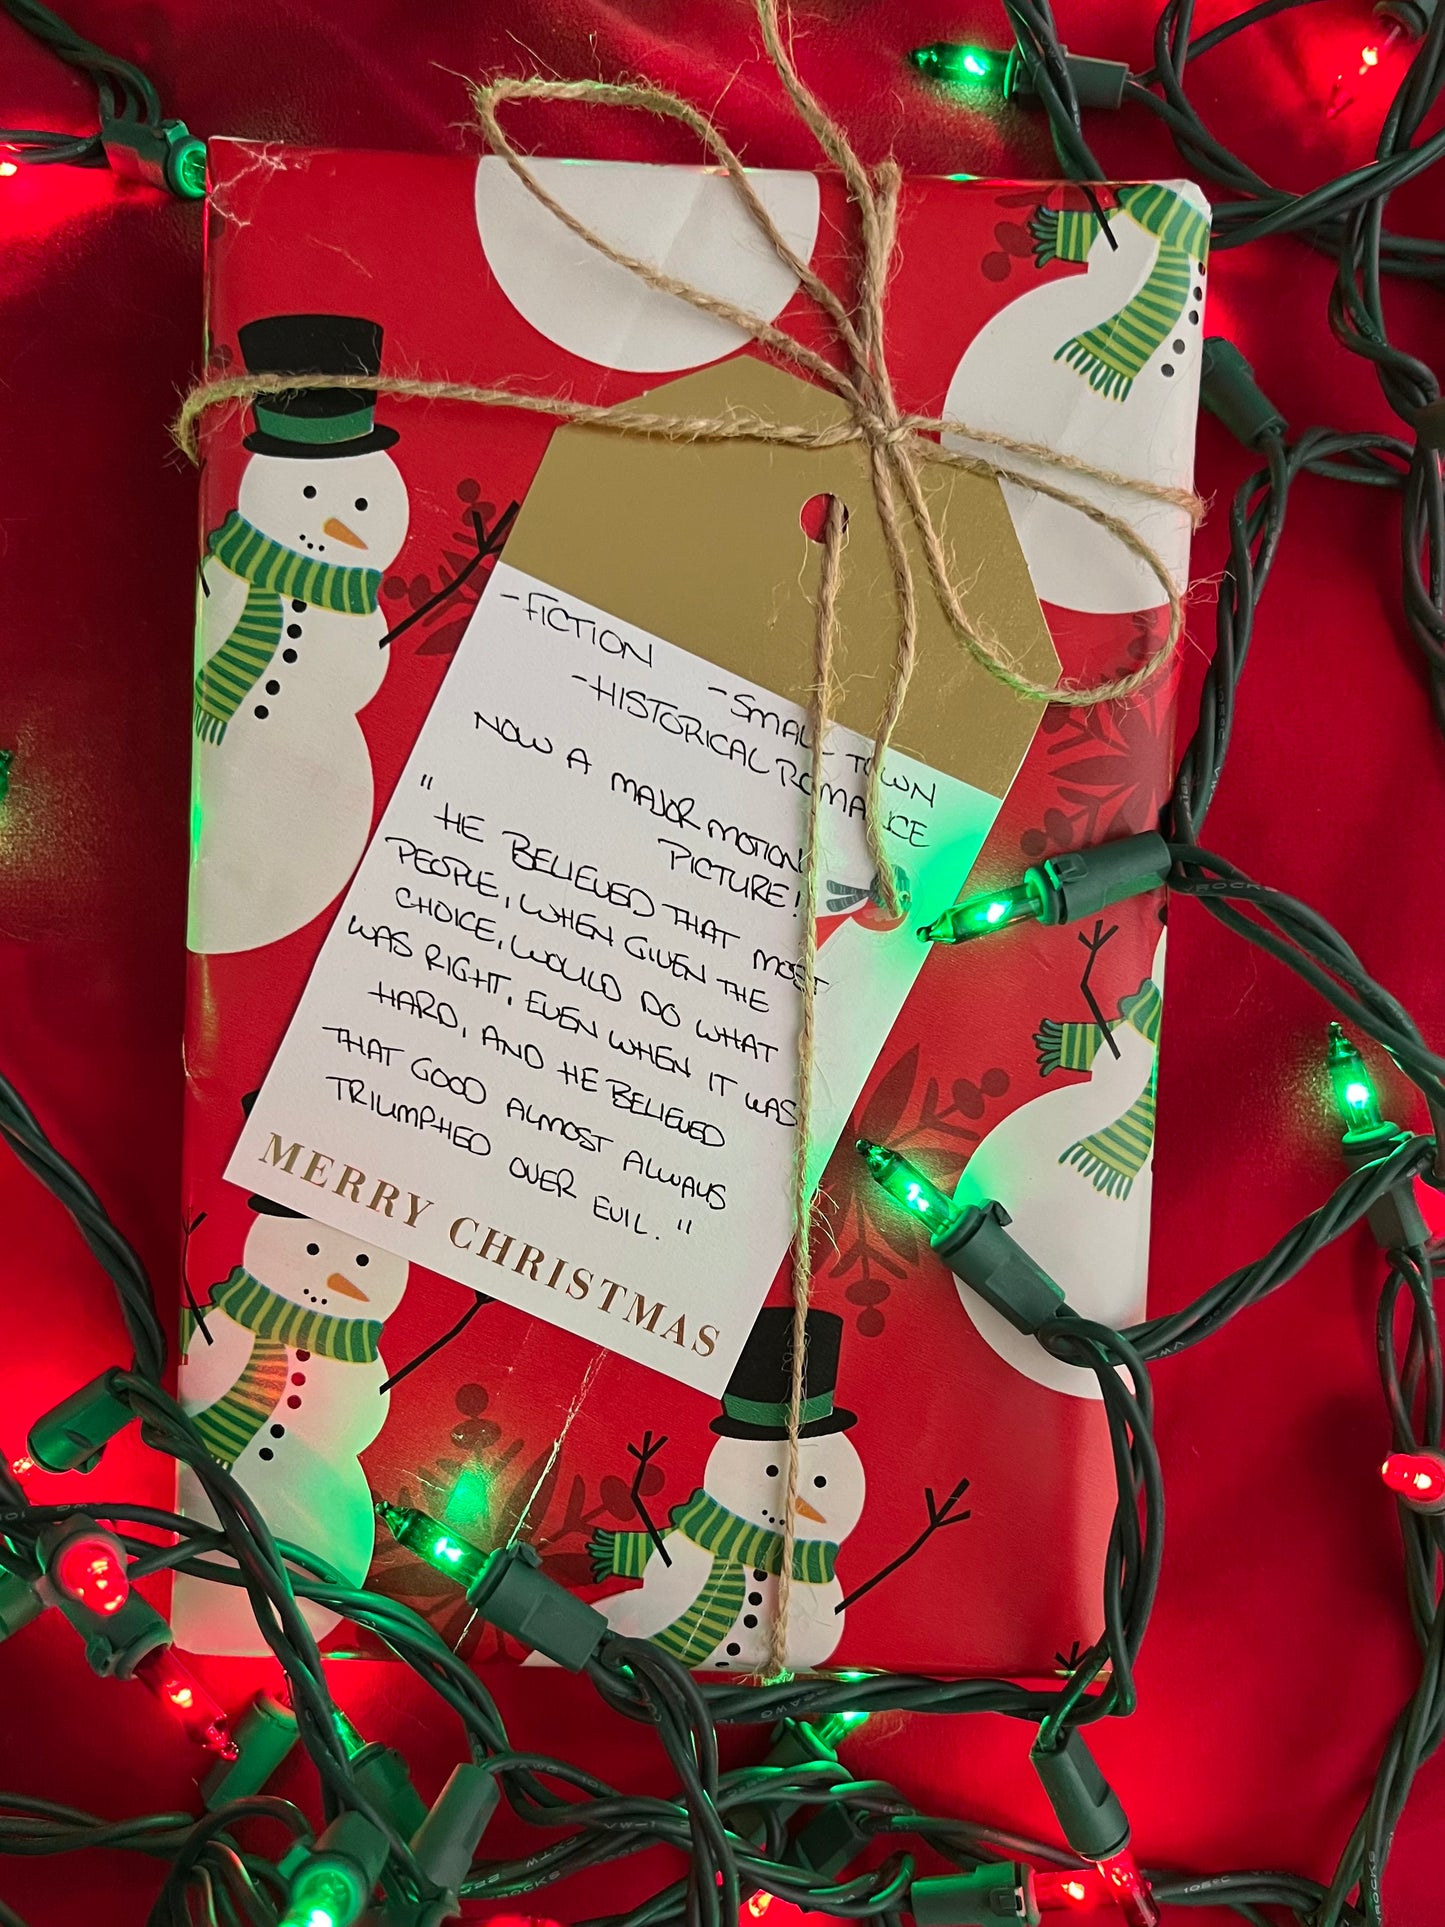 -FICTION -SMALL TOWN
-HISTORICAL ROMANCE
NOW A MAJOR MOTION
PICTURE!
"HE BELIEVED THAT MOST
PEOPLE, WHEN GIVEN THE
CHOICE, WOULD DO WHAT
WAS RIGHT, EVEN WHEN IT WAS
HARD, AND HE BELIEVED
THAT GOOD ALMOST ALWAYS
TRIUMPHED OVER EVIL."
MERRY CHRISTMAS